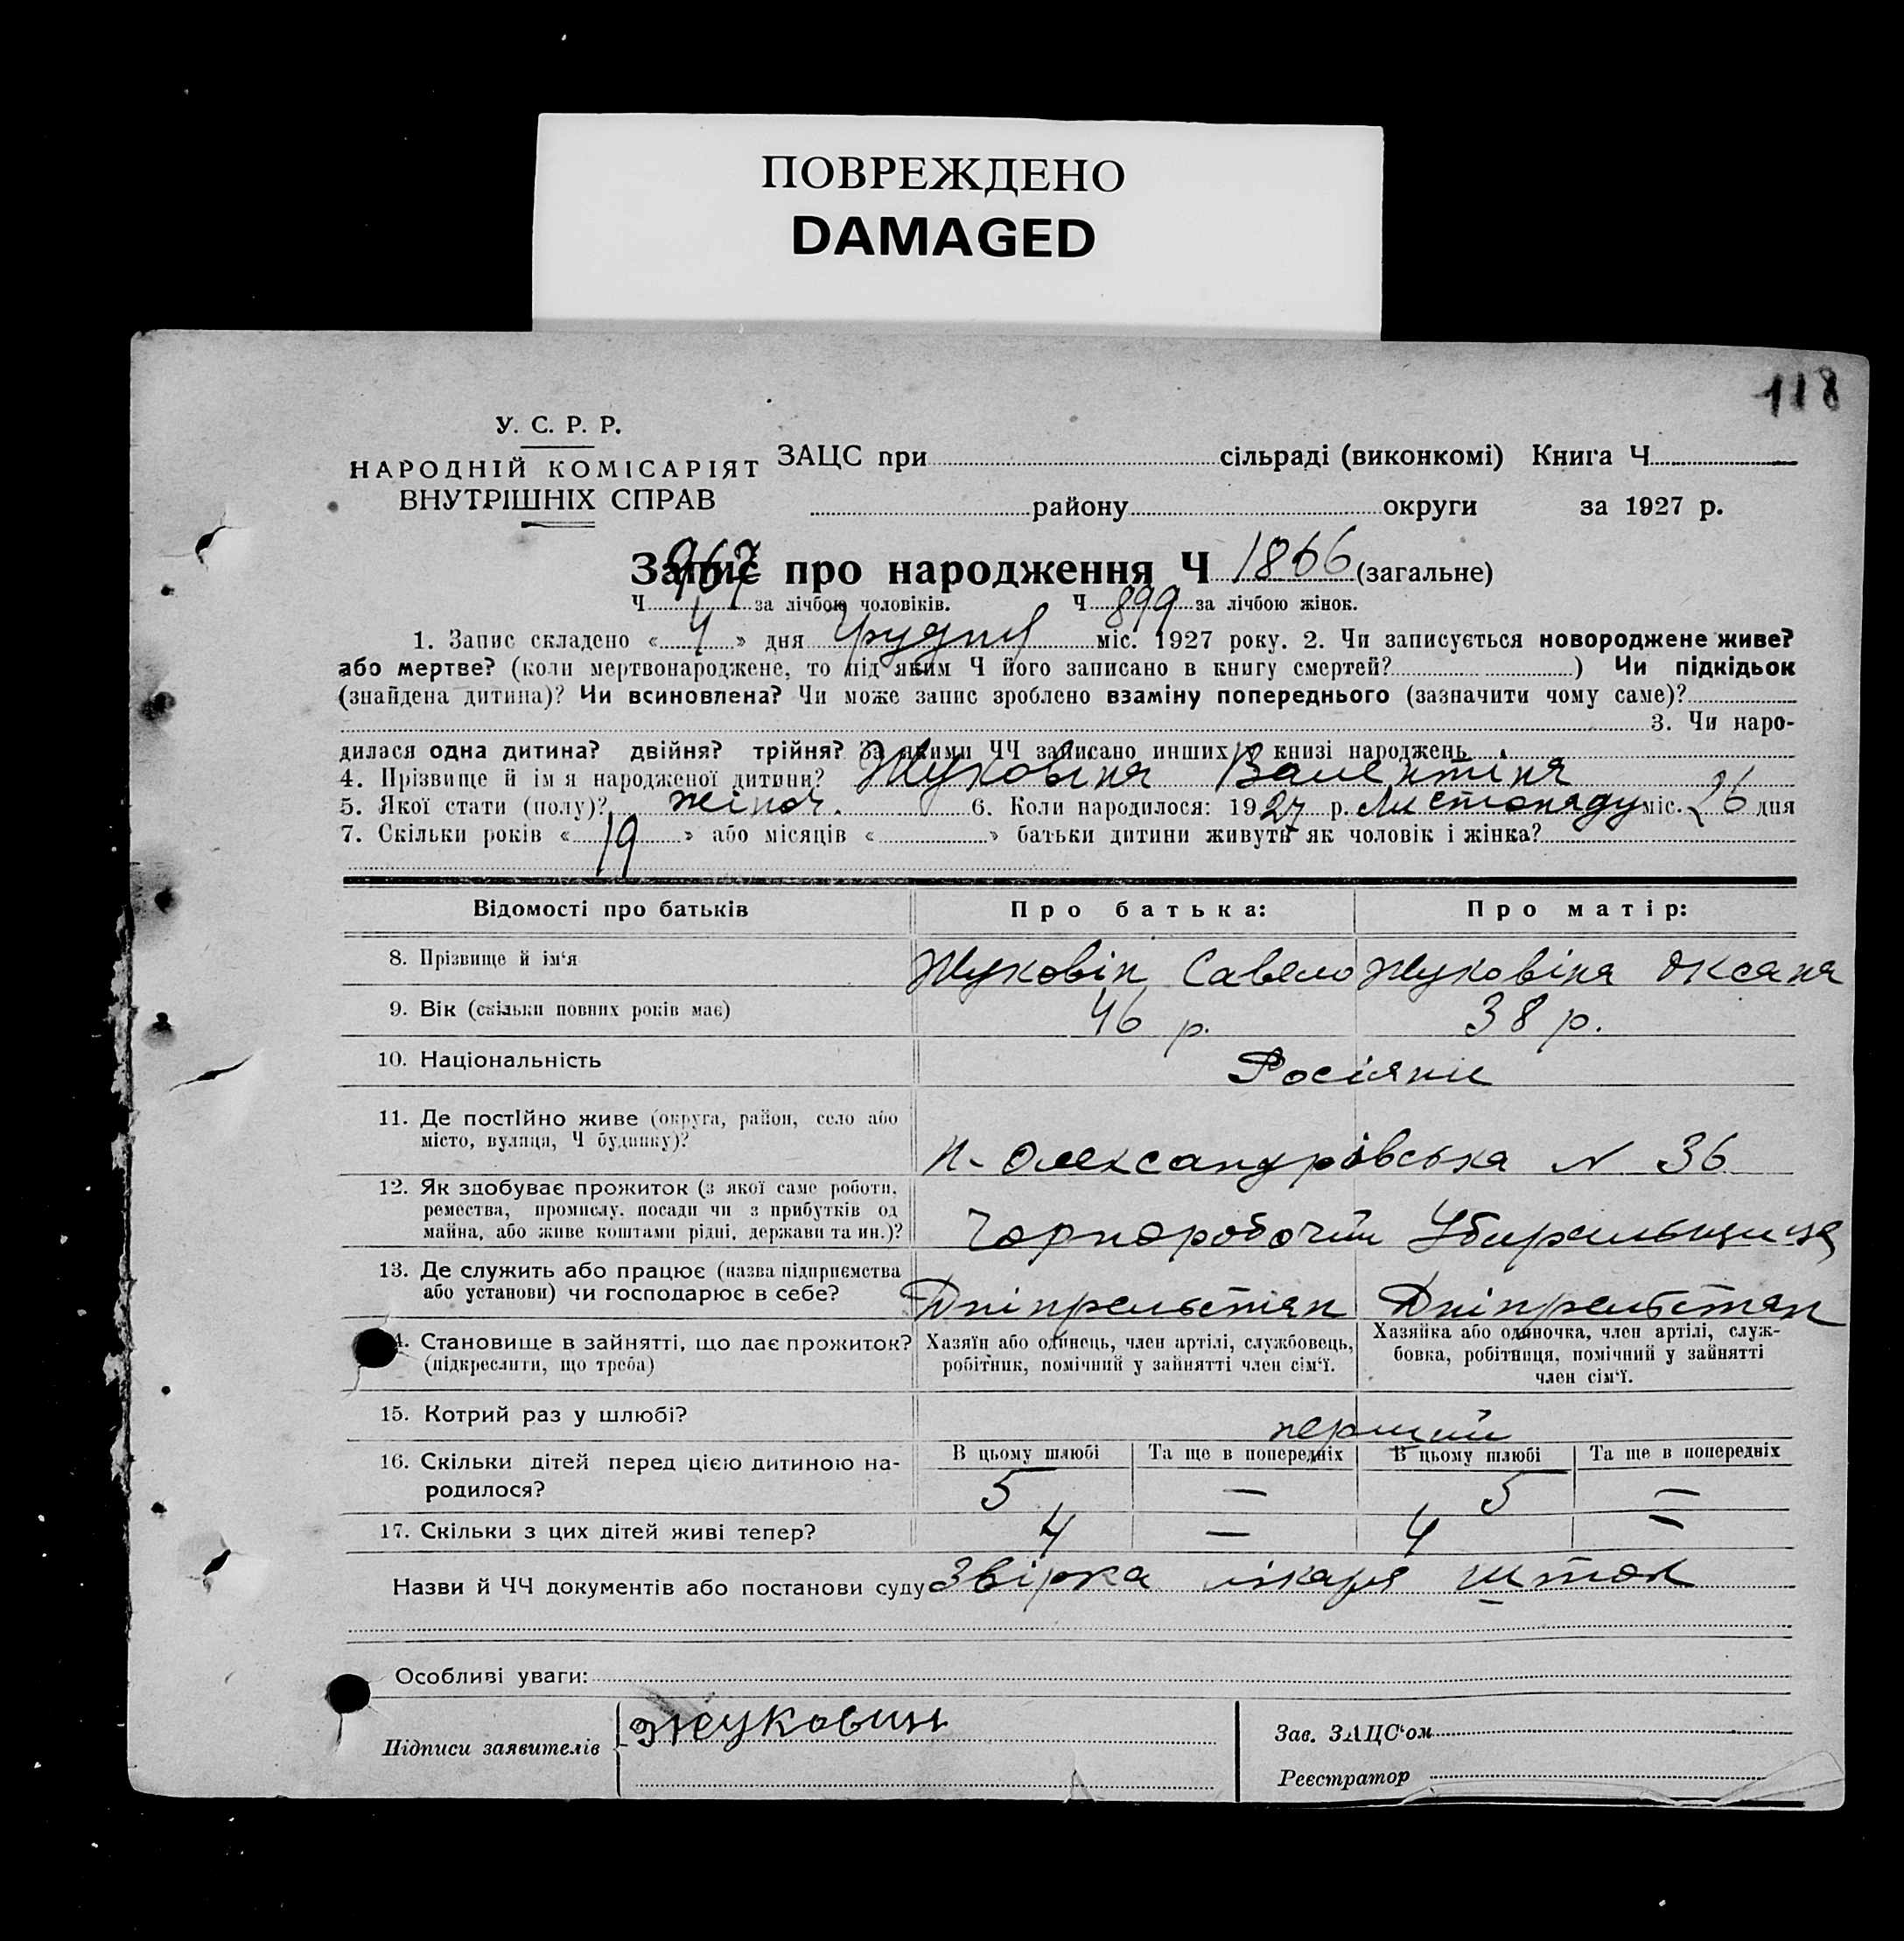 ПОВРЕЖДЕНО
DAMAGED
118
У. С. Р. Р.
НАРОДНІЙ КОМІСАРІЯТ
ВНУТРІШНІХ СПРАВ
ЗАЦС при сільраді (виконкомі) Книга Ч
району округи за 1927 р.
Запис про народження Ч 1866 (загальне)
967
Ч за лічбою чоловіків. Ч 899 за лічбою жінок.
1. Запис складено « 4 » дня Грудня міс. 1927 року. 2. Чи записується новороджене живе?
або мертве? (коли мертвонароджене, то під яким Ч його записано в книгу смертей? ) Чи підкідьок
(знайдена дитина)? Чи всиновлена? Чи може запис зроблено взаміну попереднього (зазначити чому саме)?
3. Чи наро-
дилася одна дитина? двійня? трійня? За якими ЧЧ записано инших в книзі народжень
4. Прізвище й імя народженої дитини? Жуковіна Валентина
5. Якої стати (полу)? жіноч. 6. Коли народилося: 1927 р. Листопаду міс. 26 дня
7. Скільки років « 19 » або місяців « » батьки дитини живуть як чоловік і жінка?
Відомості про батьків Про батька: Про матір:
8. Прізвище й ім'я Жуковін Савело Жуковіна Оксана
9. Вік (скільки повних років має) 46 р. 38 р.
10. Національність Росіяни
11. Де постійно живе (округа, район, село або
місто, вулиця, Ч будинку)? Н-Олександрівська N 36
12. Як здобуває прожиток (з якої саме роботи,
ремества, промислу, посади чи з прибутків од
майна, або живе коштами рідні, держави та ин.)? Чорноробочий Убиральщиця
13. Де служить або працює (назва підприємства
або установи) чи господарює в себе? Дніпрельстан Дніпрельстан
4. Становище в зайнятті, що дає прожиток? Хазяїн або одинець, член артілі, службовець, Хазяйка або одиночка, член артілі, служ-
(підкреслити, що треба) робітник, помічний у зайнятті член сім'ї. бовка, робітниця, помічний у зайнятті
член сім'ї.
15. Котрий раз у шлюбі? перший
16. Скільки дітей перед цією дитиною на- В цьому шлюбі Та ще в попередніх В цьому шлюбі Та ще в попередніх
родилося? 5 — 5 —
17. Скільки з цих дітей живі тепер? 4 — 4 —
Назви й ЧЧ документів або постанови суду Звірка лікаря Шток
Особливі уваги:
Підписи заявителів Жуковин
Зав. ЗАЦС'ом
Реєстратор